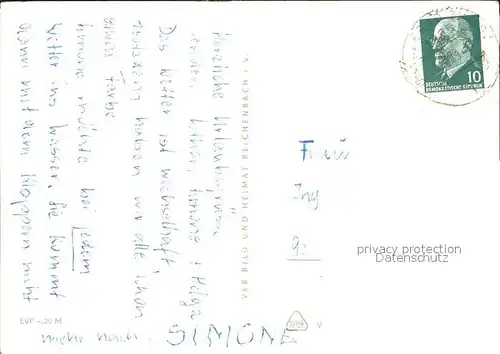 Herzliche Urlaubsgrüße
senden Lothar, Simone + Helga
Das Wetter ist wechselhaft,
trotzdem haben wir alle schon
etwas Farbe
Simone möchte bei jedem
Wetter ins Wasser, sie kommt
aus mit ihrem nicht
mehr nach. SIMONE
VEB BILD UND HEIMAT REICHENBACH i. V.
EVP -,20 M
V
DEUTSCHE
DEMOKRATISCHE REPUBLIK
10
Frau
Ing
privacy protection
Datenschutz